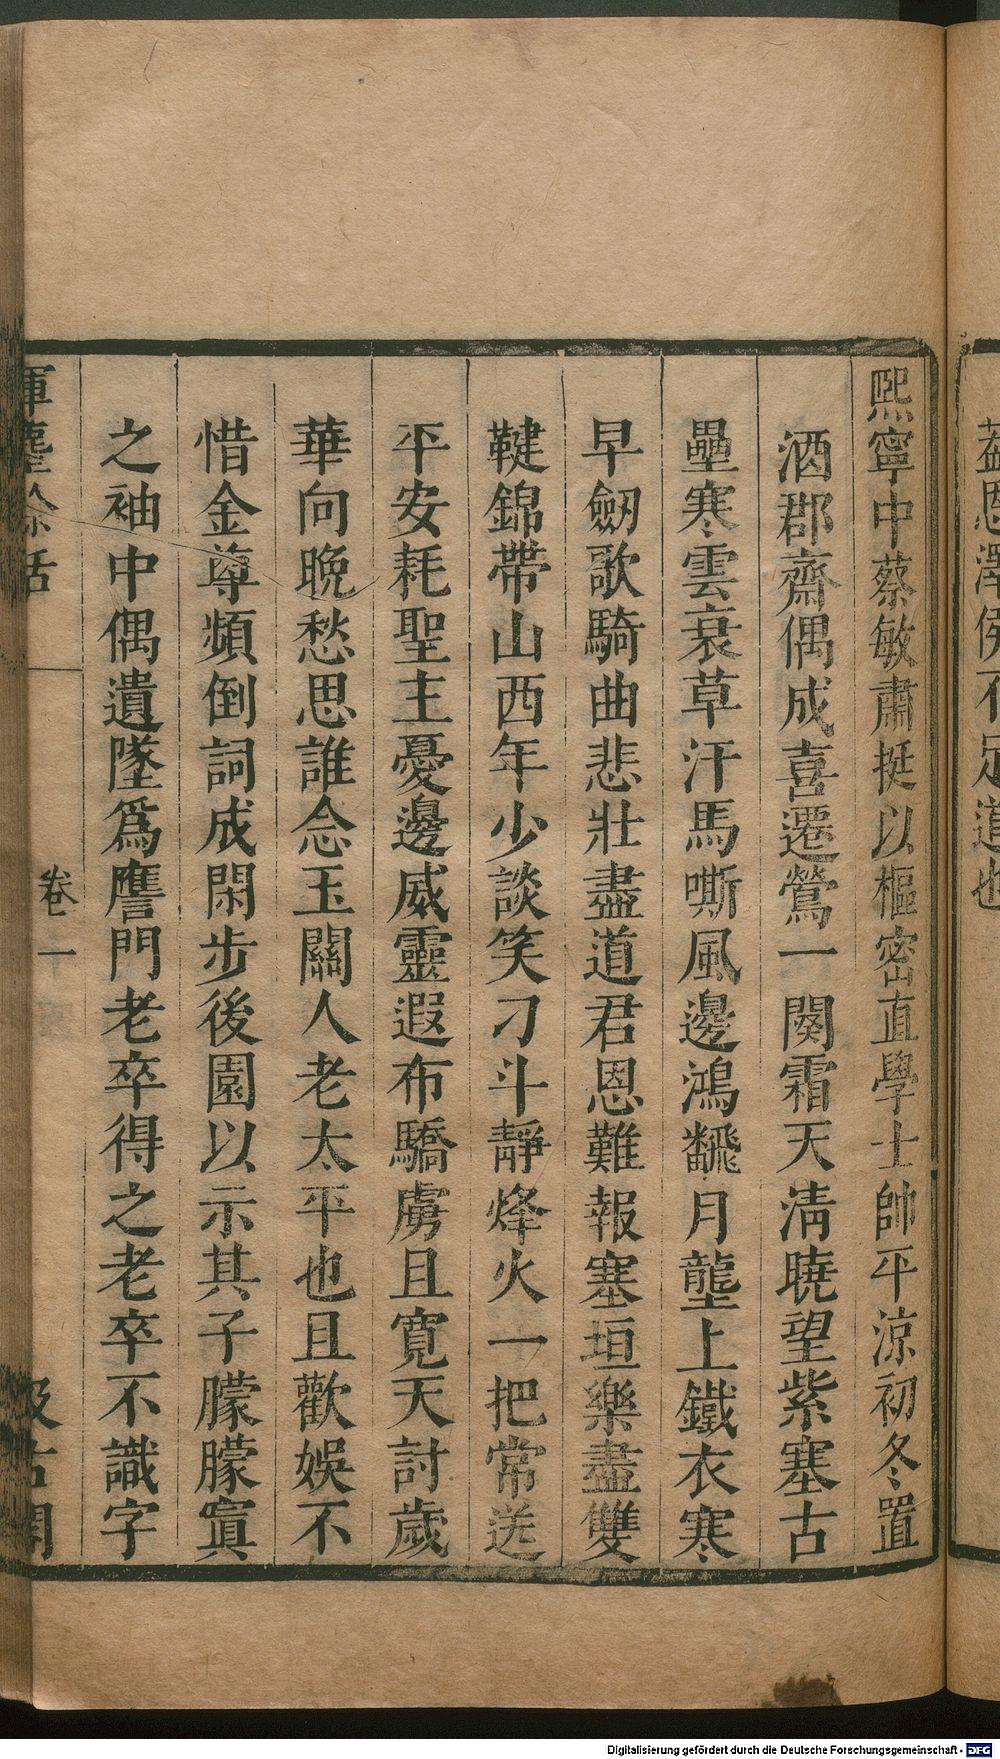 葢恩澤侯不足道也
熙寧中蔡敏肅挺以樞密直學士帥平涼初冬置
酒郡齋偶成喜遷鶯一闋霜天清曉望紫塞古
壘寒雲衰草汗馬嘶風邊鴻翻月壟上鐵衣寒
早劒歌騎曲悲壯盡道君恩難報塞垣樂盡雙
鞬錦帶山西年少談笑刁斗靜烽火一把常送
平安耗聖主憂邊威靈遐布驕虜且寬天討歲
華向晚愁思誰念玉關人老太平也且歡娛不
惜金尊頻倒詞成閑步後園以示其子朦朦寘
之袖中偶遺墜爲譍門老卒得之老卒不識字
揮麈餘話
卷一
汲古閣
Digitalisierung gefördert durch die Deutsche Forschungsgemeinschaft - DFG